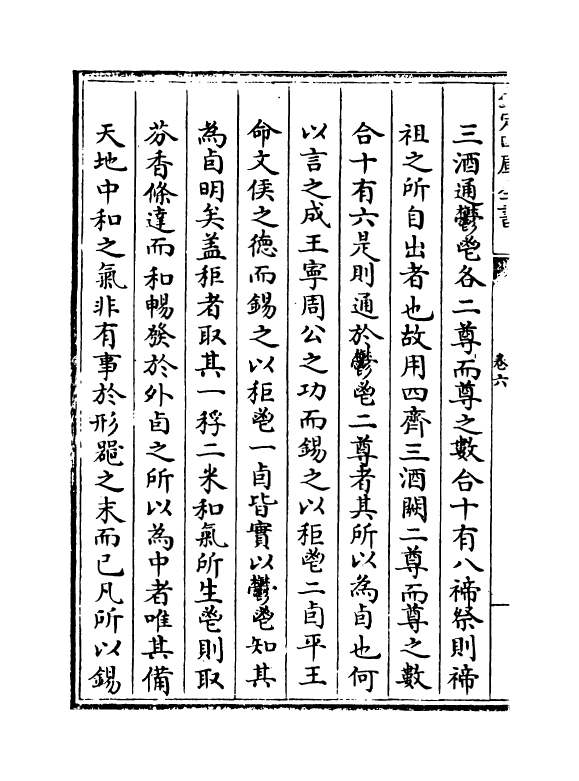 欽定四庫全書
卷六
三酒通鬱鬯各二尊而尊之數合十有八禘祭則禘
祖之所自出者也故用四齊三酒闕二尊而尊之數
合十有六是則通於鬱鬯二尊者其所以為卣也何
以言之成王寧周公之功而錫之以秬鬯二卣平王
命文侯之徳而錫之以秬鬯一卣皆實以鬱鬯知其
為卣明矣盖秬者取其一稃二米和氣所生鬯則取
芬香條達而和暢發於外卣之所以為中者唯其備
天地中和之氣非有事於形器之末而已凡所以錫